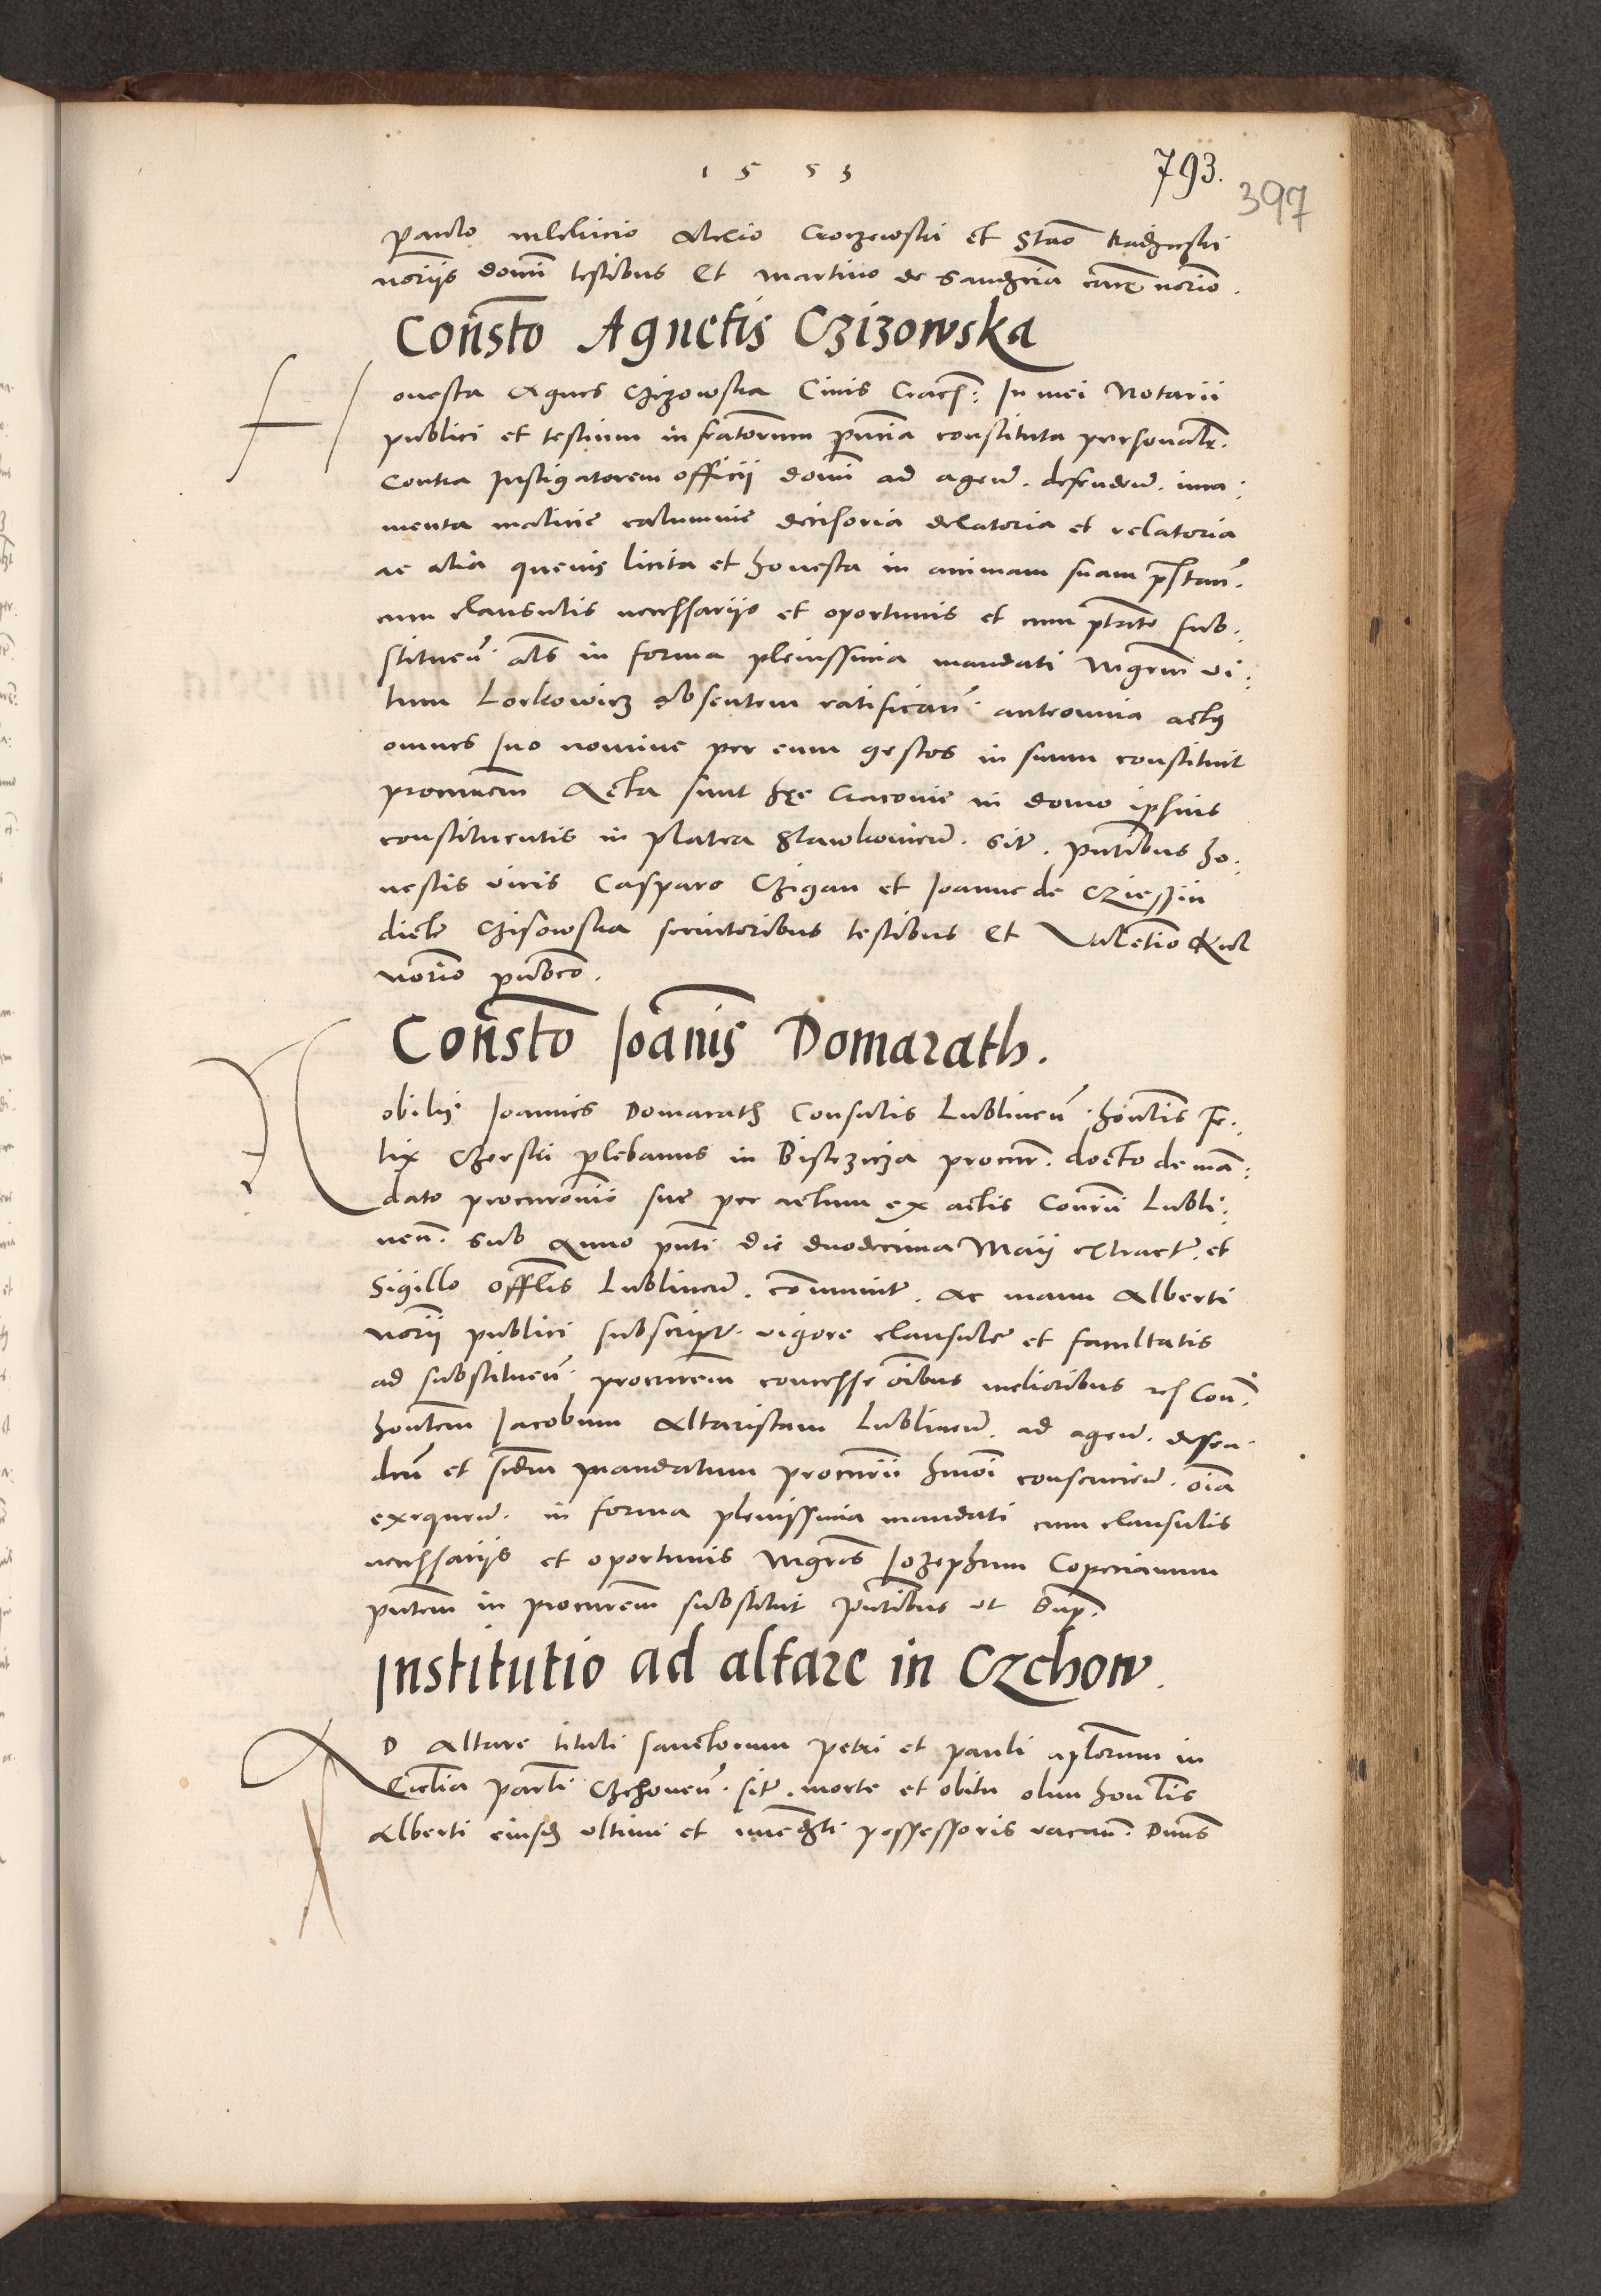 1553
793.
397
Paulo Alexio Croczewski et Stāo Radzeski
noriis domī testibus Et Martino de causarū norio.
Constō Agnetis Czizowska
Honesta Agnes Czizowska Civis Cracn: In mei Notarii
publici et testium infratorum pntia constituta personalr.
Contra Instigatorem officii domi ad agend. defendend. iura:
menta malicie calumnie decisoria delatoria et relatoria
ac alia quevis licita et honesta in animam suam prestan.
cum clausulis necessariis et oportunis et cum ptate sub:
stituen. als in forma plenissima mandati Mgrm Vi:
tum Lorkowicz absentem ratifican. anteomnia actus
omnes suo nomine per eum gestos in suum constituit
procurem Acta sunt hęc Cracovie in domo ipsius
constituentis in platea Slawkovien. sit. pntibus ho:
nestis viris Casparo Czigan et Joanne de Cziessin
dicte Czisowska servitoribus testibus Et Valentio Kul
norio publco.
Constō Joānis Domarath.
Nobilis Joannis Domarath Consulis Lublinen. honblis Fe:
lix Czerski plebanus in Bistrzicza procur. docto de man:
dato procurationis sue per actum ex actis Consrii Lubli:
nen. sub Anno pnti die duodecima Maii extract. et
Sigillo offlis Lublinen. communit. ac manu Alberti
norii publici subscript. vigore clausule et facultatis
ad substituen. procurem concesse oibus melioribus
honblem Jacobum Altaristam Lublinen. ad agend. deffen:
den et scdm mandatum procurii hmoi conscricien. oia
exequend. in forma plenissima mandati cum clausulis
necessariis et oportunis Mgros Jozephum Copecianum
pntem in procurem substituit pntibus ut sup.
Institutio ad altare in Czchow.
AD Altare tituli sanctorum Petri et Pauli aplorum in
Ecclia parli Czchovien. sit. morte et obitu olim honblis
Alberti eiusd ultimi et immediti possessoris vacan. Dnus